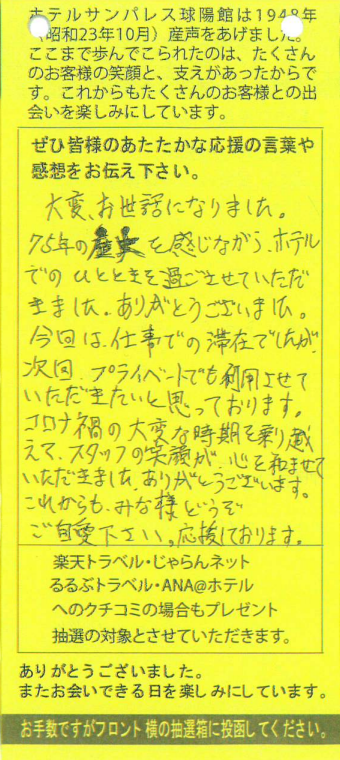 ホテルサンパレス球陽館は1948年
（昭和23年10月）産声をあげました。
ここまで歩んでこられたのは、たくさん
のお客様の笑顔と、支えがあったからで
す。これからもたくさんのお客様との出
会いを楽しみにしています。
ぜひ皆様のあたたかな応援の言葉や
感想をお伝え下さい。
大変、お世話になりました。
75年の歴史を感じながら、ホテル
でのひとときを過ごさせていただ
きました。ありがとうございました。
今回は、仕事での滞在でしたが、
次回、プライベートでも利用させて
いただきたいと思っております。
コロナ禍の大変な時期を乗り越
えて、スタッフの笑顔が、心を和ませて
いただきました。ありがとうございます。
これからも、みな様どうぞ
ご自愛下さい。応援しております。
楽天トラベル・じゃらんネット
るるぶトラベル・ANA@ホテル
へのクチコミの場合もプレゼント
抽選の対象とさせていただきます。
ありがとうございました。
またお会いできる日を楽しみにしています。
お手数ですがフロント横の抽選箱に投函してください。